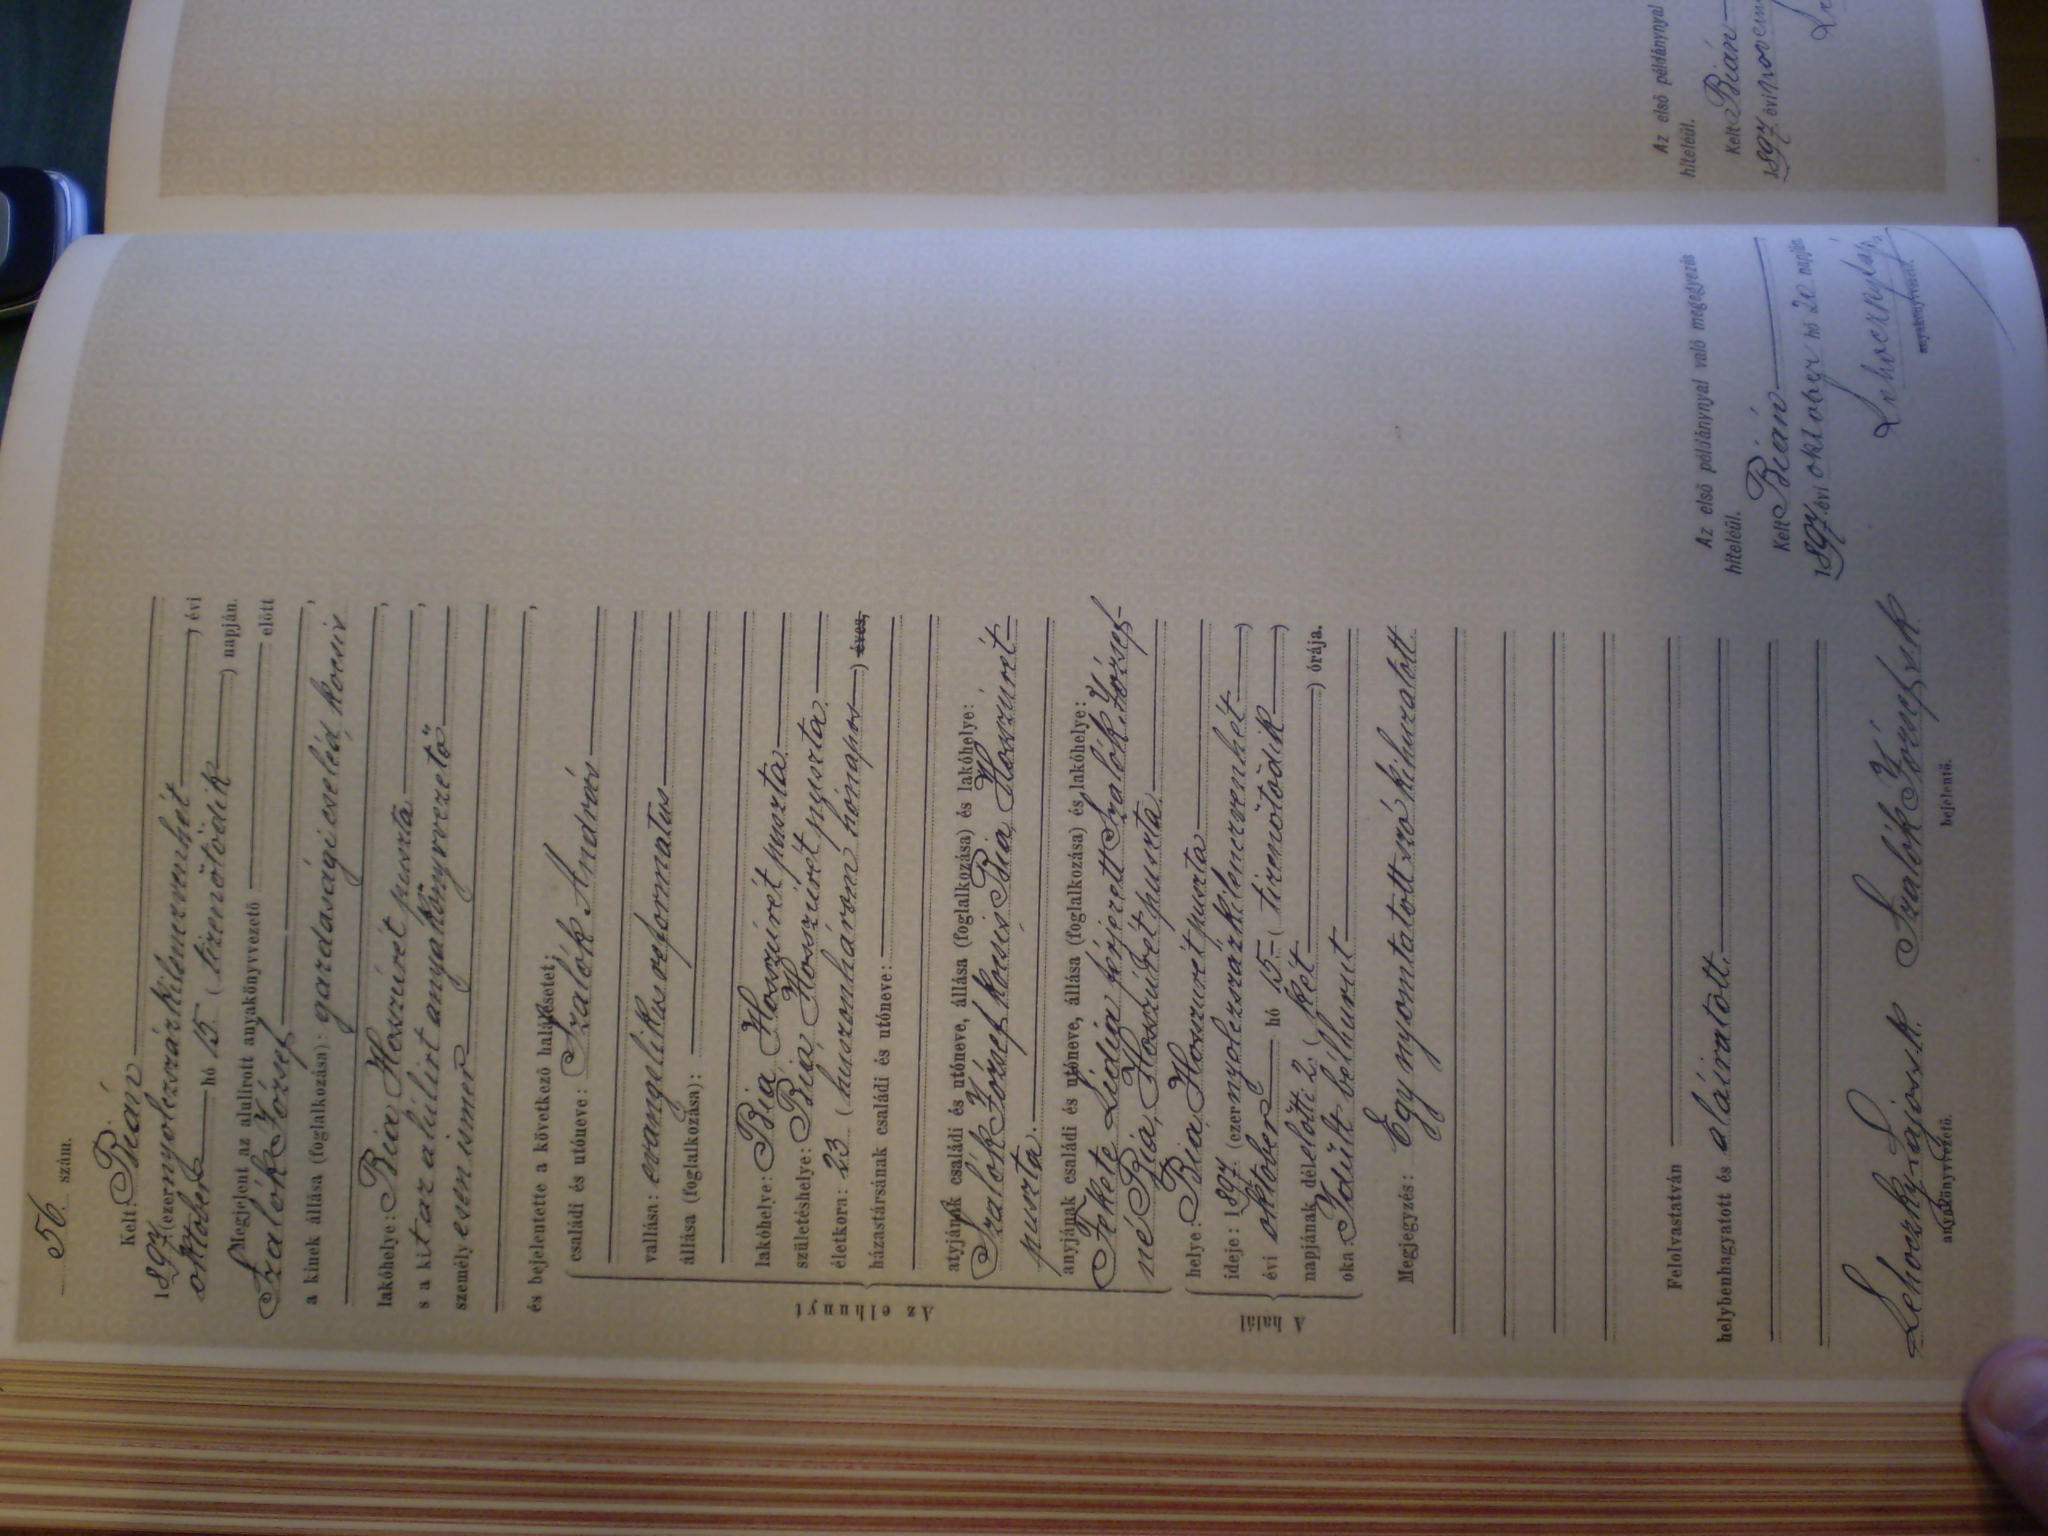 56. szám.
Kelt: Bián
1897. (ezernyolczszázkilenczvenhét ) évi
október hó 15. ( tizenötödik ) napján.
Megjelent az alulirott anyakönyvezető előtt
Szalók József
a kinek állása (foglalkozása): gazdasági cseléd, kocsis
lakóhelye: Bia, Hosszúrét puszta ,
s a kit az alúlirt anyakönyvvezető ,
személyesen ismer
,
és bejelentette a következő halálesetet;
Az elhunyt
családi és utóneve: Szalók András
vallása: evangelikus reformatus
állása (foglalkozása):
lakóhelye: Bia, Hosszúrét puszta
születéshelye: Bia, Hosszúrét puszta.
életkora: 23 ( huszonhárom hónapos ) éves,
házastársának családi és utóneve:
atyjának családi és utóneve, állása (foglalkozása) és lakóhelye:
Szalók József kocsis Bia, Hosszúrét
puszta.
anyjának családi és utóneve, állása (foglalkozása) és lakóhelye:
Fekete Lidia férjezett Szalók József
né Bia, Hosszúrét puszta
A halál
helye: Bia, Hosszúrét puszta
ideje: 1897. (ezernyolczszázkilenczvenhét )
évi október hó 15. ( tizenötödik )
napjának délelőtti 2. ( két ) órája.
oka: Idült bélhurut
Megjegyzés: Egy nyomtatott szó kihuzatott.
Felolvastatván
helybenhagyatott és aláíratott.
Lehoczky Lajos s. k.
anyakönyvvezető.
Szalók József s. k.
bejelentő.
Az első példánynyal való megegyezés
hiteléül.
Kelt Bián
1897. évi október hó 20 napján
Lehoczky Lajos
anyakönyvvezető.
Az első példánynyal
hiteléül.
Kelt Bián
1897 évi